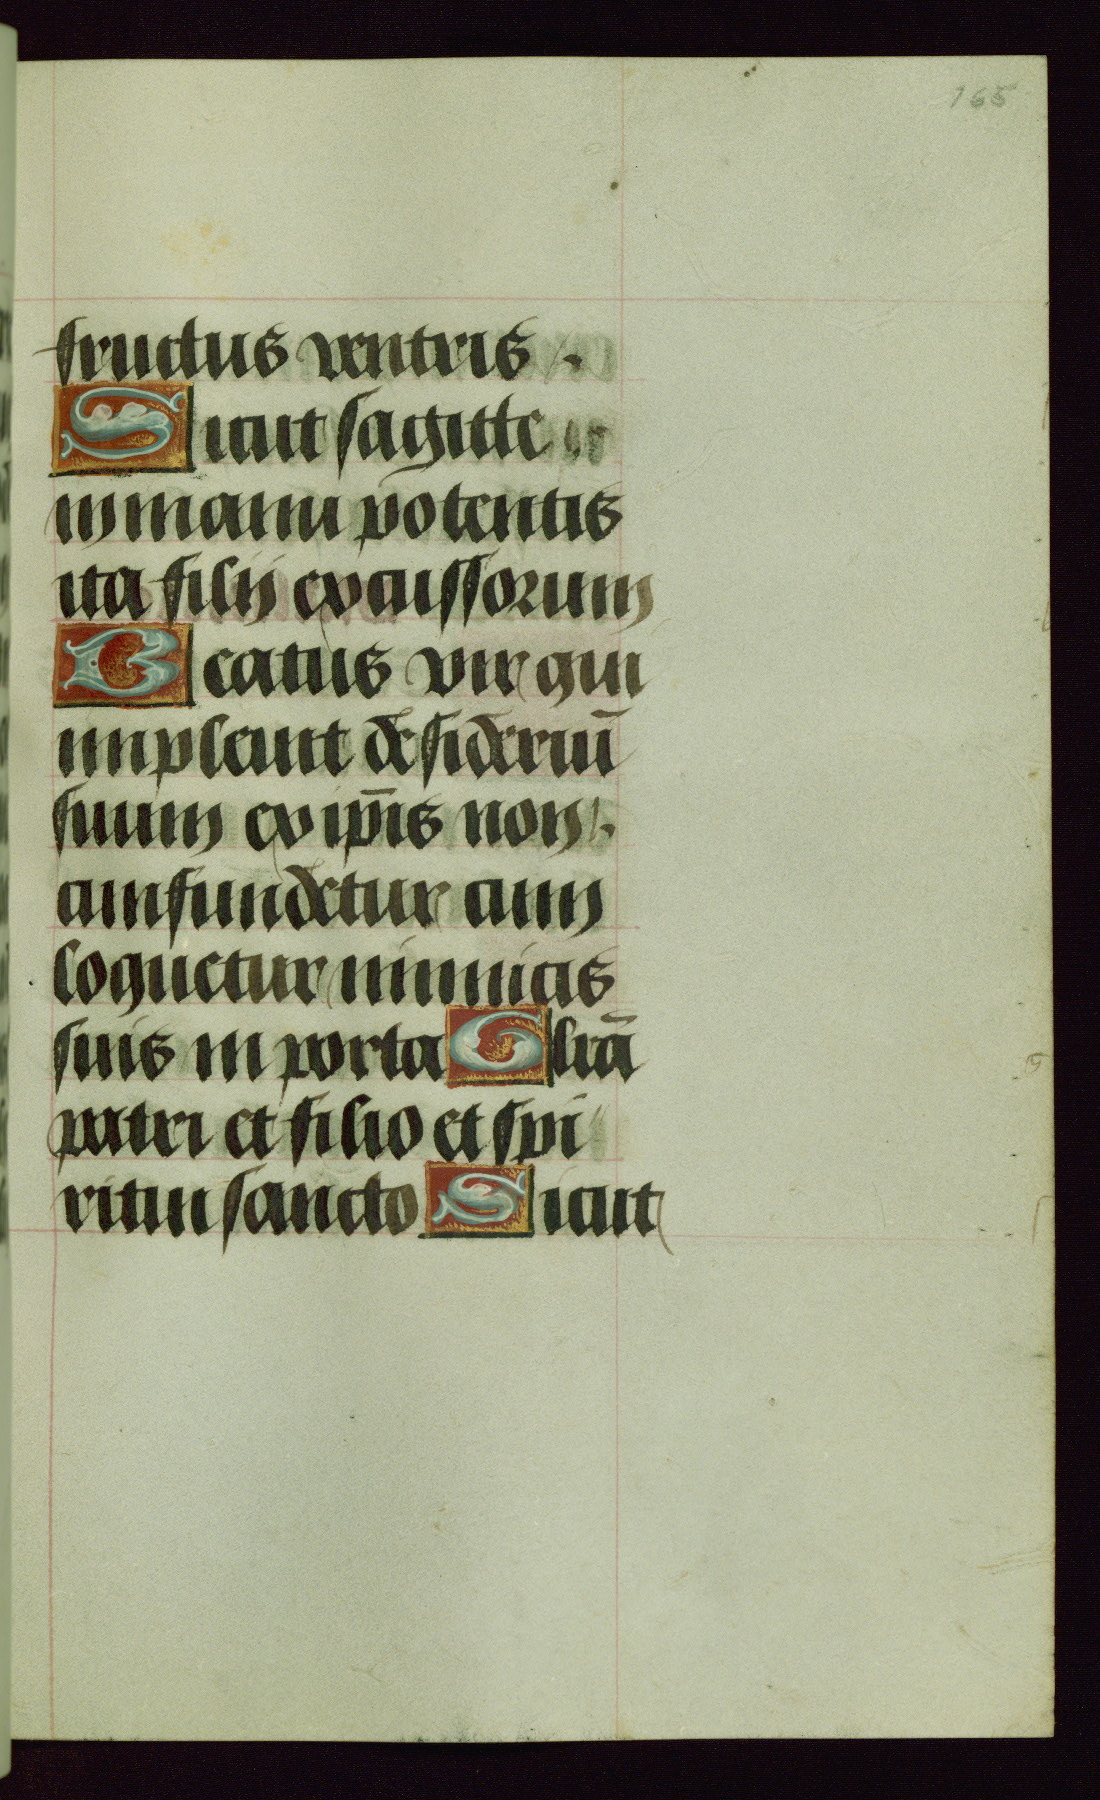 165
fructus ventris
Sicut sagitte
in manu potentis
ita filij excussorum
Beatus vir qui
impleuit desideriū
suum ex ip̄is non
cunfundetur cum
loquetur inimicis
suis in porta Glīa
patri et filio et spi
ritui sancto Sicut